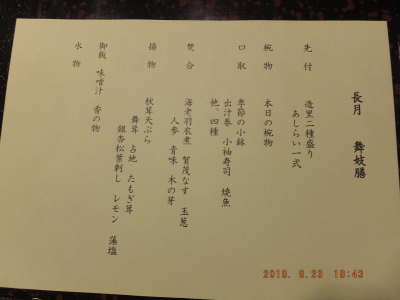 長月　舞妓膳
先付　造里二種盛り
あしらい一式
椀物　本日の椀物
口取　季節の小鉢
出汁巻　小袖寿司　焼魚
他、四種
焚合　海老羽衣煮　賀茂なす　玉葱
人参　青味　木の芽
揚物　秋茸天ぷら
舞茸　占地　たもぎ茸
銀杏松葉刺し　レモン　藻塩
御飯　味噌汁　香の物
水物
2018. 9.23 18:43